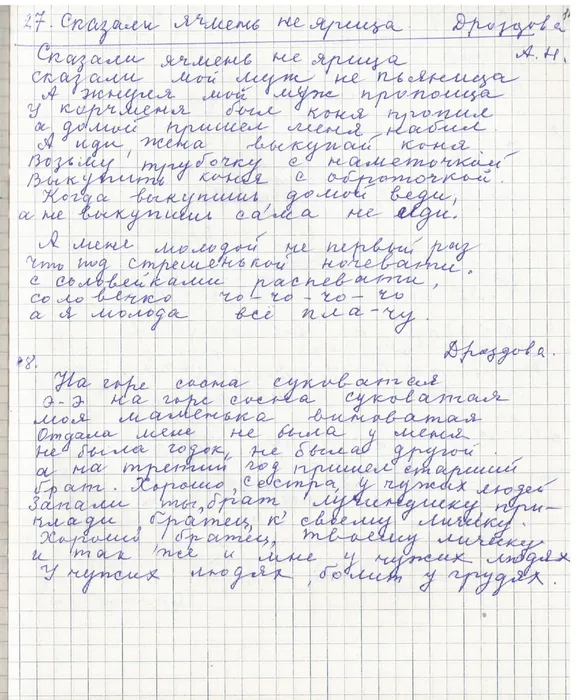 27. Сказали ячмень не ярица. Дроздова
А.Н.
Сказали ячмень не ярица
сказали мой муж не пьяница
А мой муж пропоица
У корчменя был коня пропил
а домой пришел меня набил
А иди, жена выкупай коня
Возьму трубочку с наметочкой
Выкупить коня с оброточкой.
Когда выкупишь домой веди,
а не выкупишь сама не иди.
А мене молодой не первый раз
что под стрешенькой ночевати.
с соловейками распевати,
соловечко чо-чо-чо-чо
а я молода всё пла-чу.
Дроздова.
8.
На горе сосна суковатая
э-э на горе сосна суковатая
моя маменька виноватая
Отдала мене не была у меня
не была годок, не была другой
а на третий год пришел старший
брат. Хорошо, сестра, у чужих людей
Запали ты, брат лучинушку при-
клади, братец, к своему личику.
Хорошо, братец, твоему личику
и так же и мне у чужих людях
У чужих людях, болит у грудях.